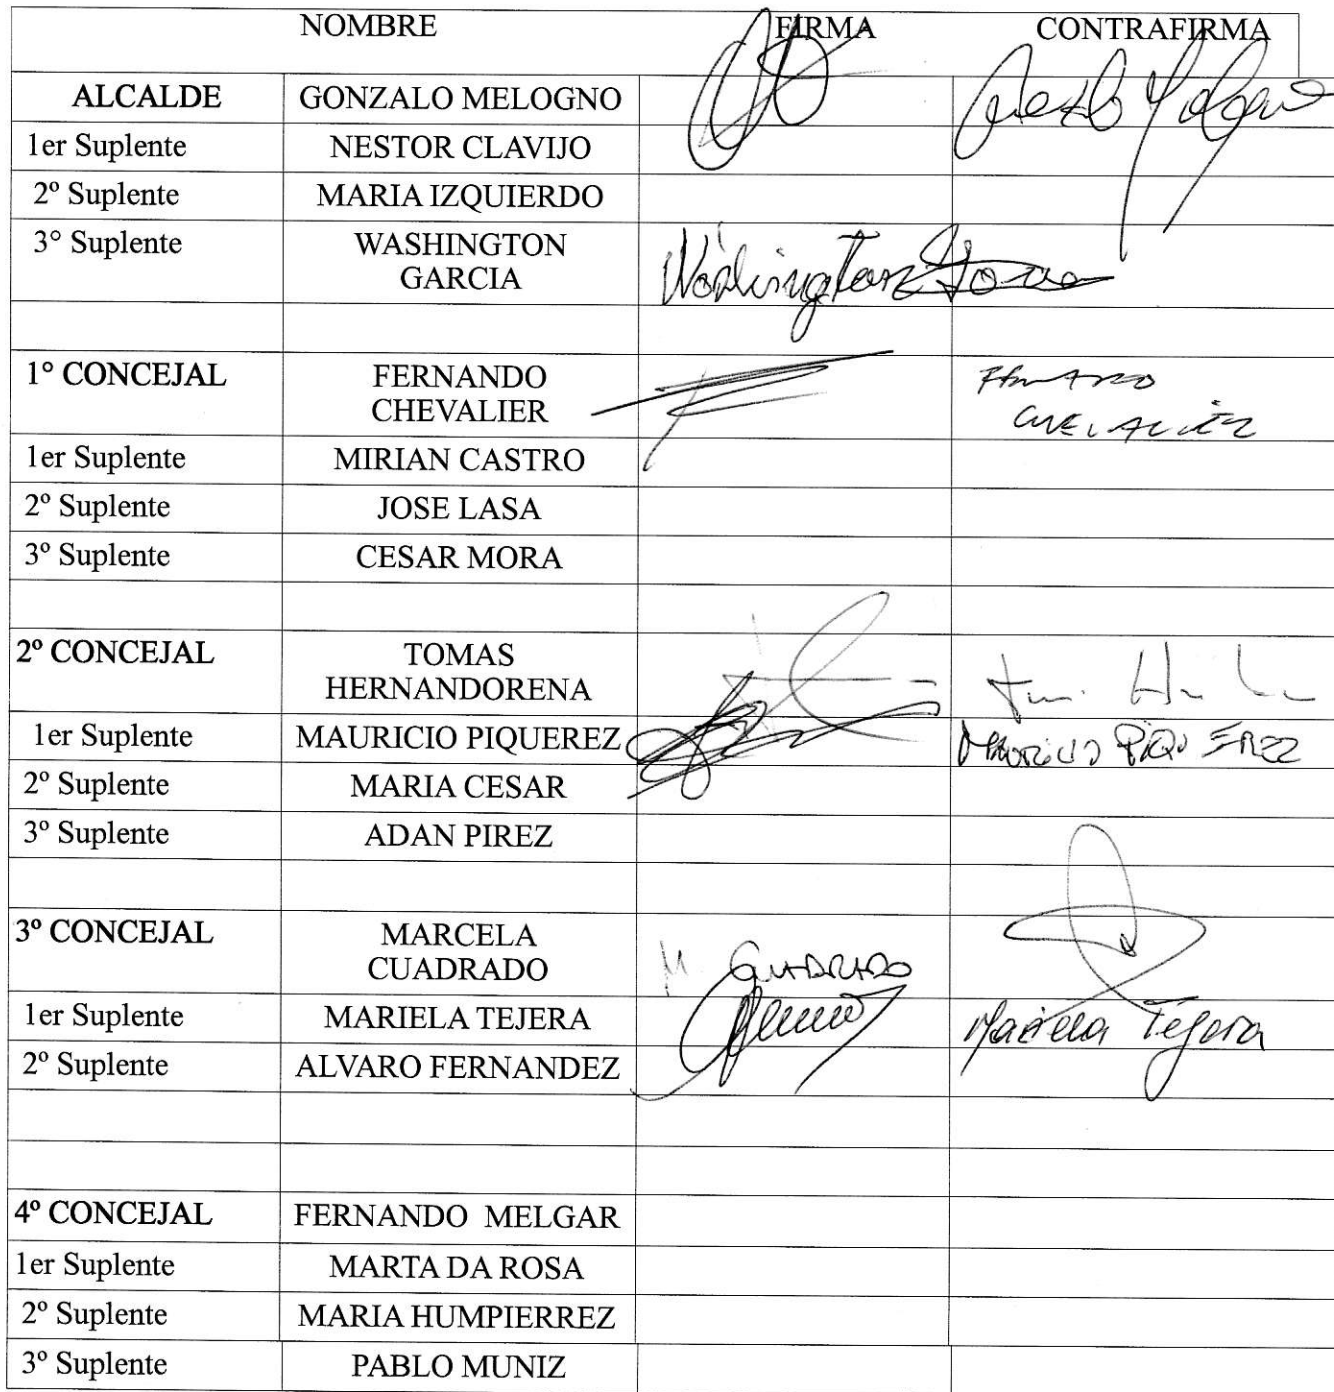 NOMBRE FIRMA CONTRAFIRMA
ALCALDE GONZALO MELOGNO
1er Suplente NESTOR CLAVIJO
2º Suplente MARIA IZQUIERDO
3° Suplente WASHINGTON
GARCIA Washington
1° CONCEJAL FERNANDO
CHEVALIER
1er Suplente MIRIAN CASTRO
2º Suplente JOSE LASA
3º Suplente CESAR MORA
2º CONCEJAL TOMAS
HERNANDORENA
1er Suplente MAURICIO PIQUEREZ MAURICIO PIQUEREZ
2º Suplente MARIA CESAR
3º Suplente ADAN PIREZ
3º CONCEJAL MARCELA
CUADRADO M. CUADRADO
1er Suplente MARIELA TEJERA Mariela Tejera
2º Suplente ALVARO FERNANDEZ
4º CONCEJAL FERNANDO MELGAR
1er Suplente MARTA DA ROSA
2º Suplente MARIA HUMPIERREZ
3º Suplente PABLO MUNIZ